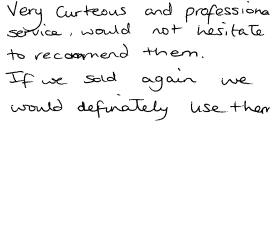 Very Curteous and professiona
service, would not hesitate
to recommend them.
If we sold again we
would definately use them